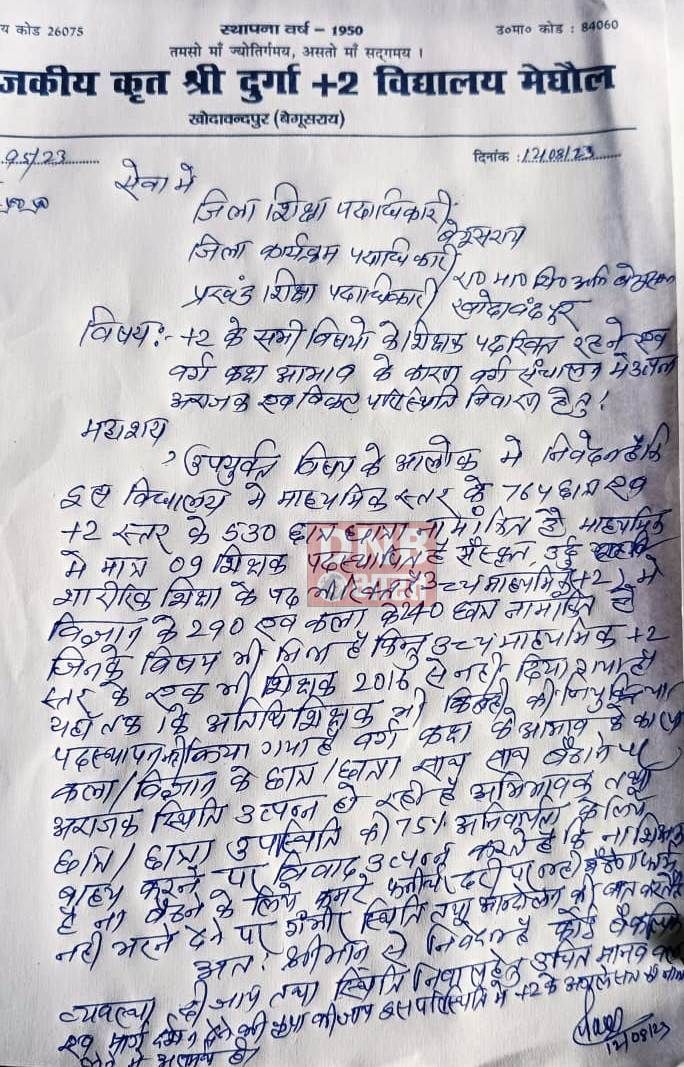 य कोड 26075 स्थापना वर्ष - 1950 उ०मा० कोड : 84060
तमसो माँ ज्योतिर्गमय, असतो माँ सद्गमय ।
जकीय कृत श्री दुर्गा +2 विद्यालय मेघौल
खोदावन्दपुर (बेगूसराय)
95/23 दिनांक : 12/08/23
सेवा में
जिला शिक्षा पदाधिकारी, बेगूसराय
जिला कार्यक्रम पदाधिकारी
प्रखंड शिक्षा पदाधिकारी खोदावंदपुर
विषय:- +2 के सभी विषयो के शिक्षक पद रिक्त रहने एव
वर्ग कक्ष आभाव के कारण वर्ग संचालन मे उत्पन्न
अराजक एव विकट परिस्थिति निवारण हेतु!
महाशय
उपर्युक्त विषय के आलोक मे निवेदन है कि
इस विद्यालय मे माध्यमिक स्तर के 764 छात्र एव
+2 स्तर के 530 छात्र छात्रा नामांकित है माध्यमिक
मे मात्र 09 शिक्षक पदस्थापित है संस्कृत, उर्दु
शारीरिक शिक्षा के पद रिक्त है उच्च माध्यमिक (+2) मे
विज्ञान के 290 एव कला के 240 छात्र नामांकित है
जिनके विषय भी भिन्न है किन्तु उच्च माध्यमिक +2
स्तर के एक भी शिक्षक 2016 से नही दिया गया है
यहाँ तक कि अतिथि शिक्षक भी किन्ही की नियुक्ति या
पदस्थापन नही किया गया है वर्ग कक्ष के आभाव के कारण
कला/विज्ञान के छात्र/छात्रा साथ साथ बैठाने पर
अराजक स्थिति उत्पन्न हो रही है अभिभावक तथा
छात्र/छात्रा उपस्थिति की 75% अनिवार्यता के लिए
बाध्य करने पर विवाद उत्पन्न करते है कि ना शिक्षक
है ना बैठने के लिए कमरे दरी पर नही बैठेगे
नही भरने देने पर गंभीर स्थिति तथा आन्दोलन की बात करते है
अत: श्रीमान से निवेदन है कोई वैकल्पिक
व्यवस्था दी जाय तथा स्थिति निवारण हेतु उचित मानव बल
एव मार्ग दर्शन देने की कृपा की जाय इस परिस्थिति मे +2 के
मे असमर्थ है।
12/08/23
DNB
भारत